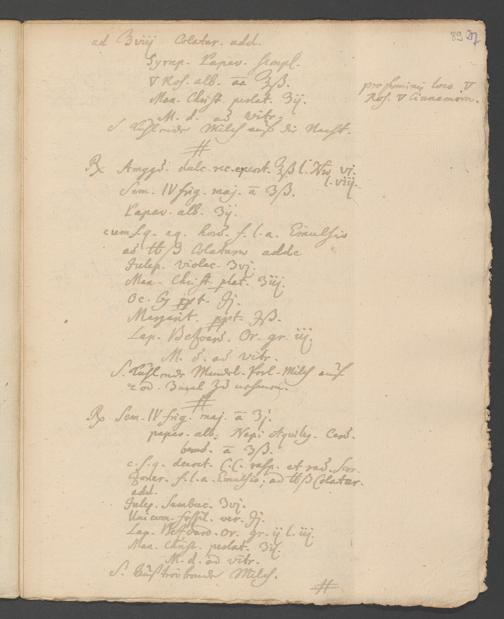 89
ad ℥viij Colatur. add.
Syrup. Papav. simpl.
▽ Ros. alb. āā ℥ß.
Man. Christ. perlat. ʒij.
M. D. ad vitr.
S. Kühlende Milch auf die Nacht.
pro foeminis loco ▽
Ros. ▽ Cinnamom.
#
℞ Amygd. dulc. rec. excort. ℥ß l. No. vj.
l. viij.
Sem. IV frig. maj. ā ʒß.
Papav. alb. ʒij.
cum s. q. aq. hord. f. l. a. Emulsio
ad ℔ß Colaturae adde
Julep. violac. ʒvj.
Man. Christ. plat. ʒiij.
Oc. 69 ppt. ℈j.
Margarit. ppt. ʒß.
Lap. Bezoard. Or. gr. iij.
M. D. ad vitr.
S. Kühlende Mandel-Perl-Milch auf
2 od. 3 mal zu nehmen.
#
℞ Sem. IV frig. maj. ā ʒj.
papav. alb. Napi Aquileg. Card.
bened. ā ʒß.
c. s. q. decoct. C. C. rasp. et rad. Scor-
zoner. f. l. a. Emulsio; ad ℔ß Colatur.
add.
Julep. Sambuc. ʒvj.
Unicorn. fossil. ver. ℈j.
Lap. Bezoard. Or. gr. ij l. iij.
Man. Christ. perlat. ʒij.
M. d. ad vitr.
S. Milch.
#